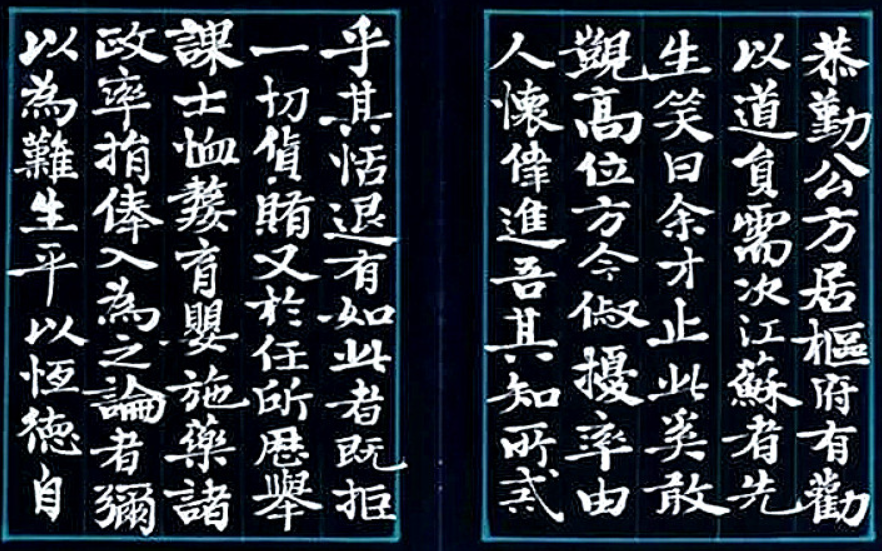 恭勤公方居樞府有勸
以道員需次江蘇者先
生笑曰余才止此奚敢
覬高位方今俶擾率由
人懷偉進吾其知所
乎其恬退有如此者既拒
一切貨賄又於任所歷舉
課士恤嫠育嬰施藥諸
政率捐俸入為之論者彌
以為難生平以恆德自